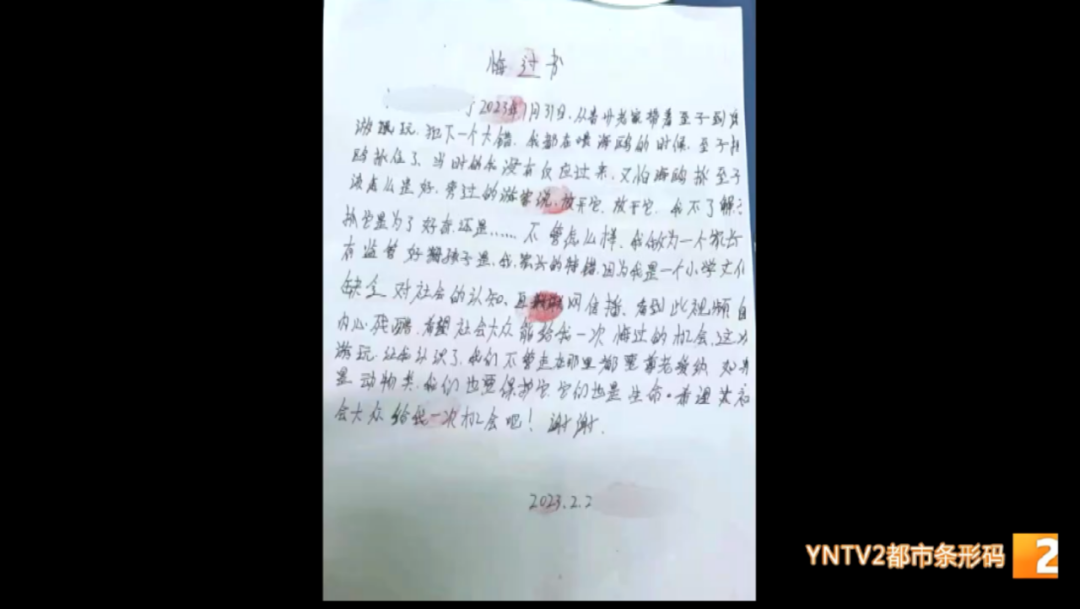 悔过书
2023年1月31日，从香丹老家带着至子到
游玩，犯下一个大错，我都在喂海鸥的时候，至子
鸥抓住了，当时的我没有反应过来，又怕海鸥抓至子
该怎么是好，旁过的游客说，放开它，放开它，我不了解
抓它是为了好奇还是……不管怎么样，我做为一个家长
有监督好孩子是，我家长的特错，因为我是一个小学文化
缺乏对社会的认知，互联网传播，看到此视频
内心残酷，希望社会大众能给我一次悔过的机会，这次
游玩，让我认识了，我们不管走在那里都要尊老爱幼，
是动物类，我们也要保护它，它们也是生命。希望
会大众给我一次机会吧！谢谢．
2023.2.2
YNTV2都市条形码 2